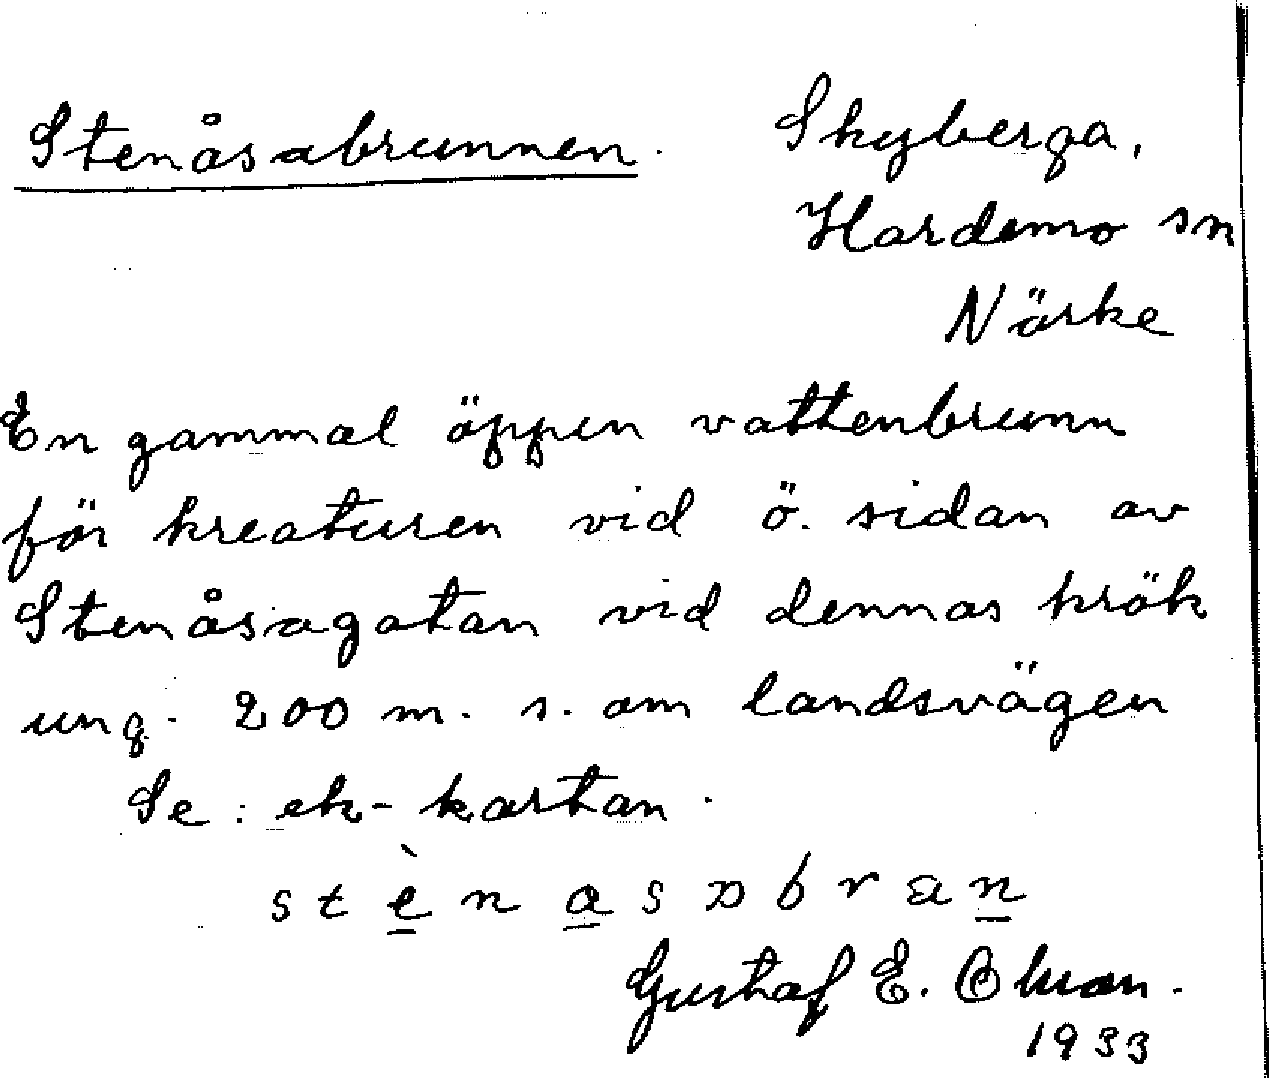 Stenåsabrunnen. Skyberga,
Hardemo sn
Närke
En gammal öppen vattenbrunn
för kreaturen vid ö. sidan av
Stenåsagatan vid dennas krök
ung. 200 m. s. om landsvägen
Se: ek-kartan.
Gustaf E.
1933